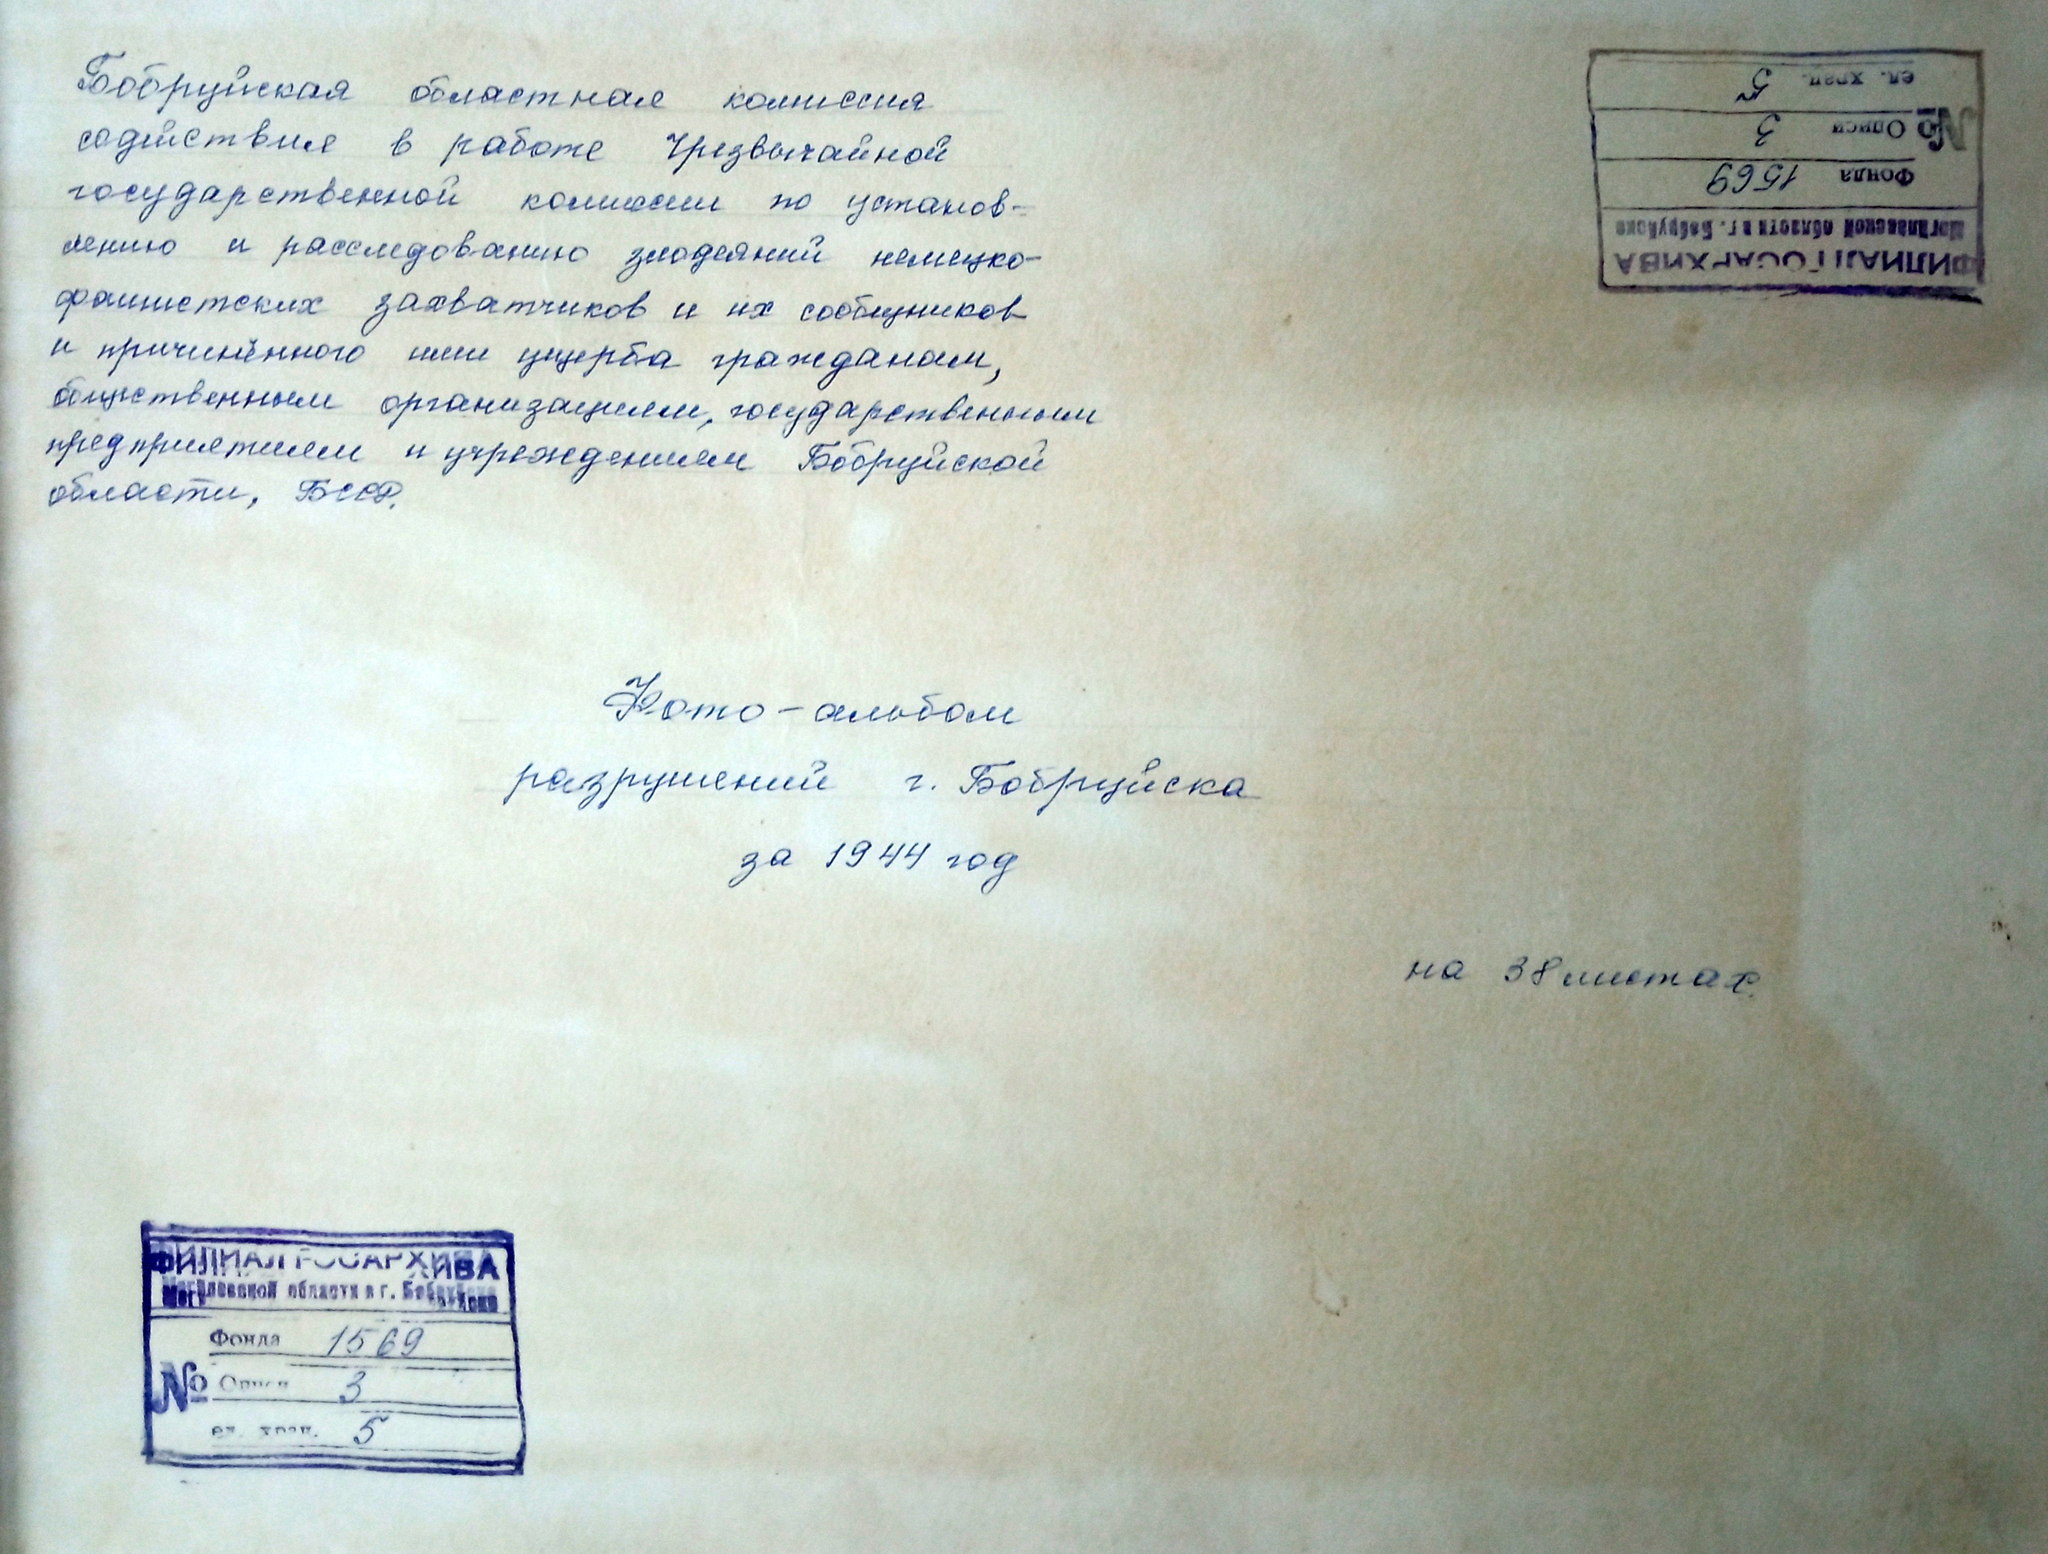 Бобруйская областная комиссия
содействия в работе Чрезвычайной
государственной комиссии по установ-
лению и расследованию злодеяний немецко-
фашистских захватчиков и их сообщников
и причинённого ими ущерба гражданам,
общественным организациям, государственным
предприятиям и учреждениям Бобруйской
области, БССР.
ФИЛИАЛ ГОСАРХИВА
Могилевской области в г. Бобруйске
Фонда 1569
№ Описи 3
ед. хран. 5
Фото-альбом
разрушений г. Бобруйска
за 1944 год
на 38 листах.
ФИЛИАЛ ГОСАРХИВА
Могилевской области в г. Бобруйске
Фонда 1569
№ Описи 3
ед. хран. 5